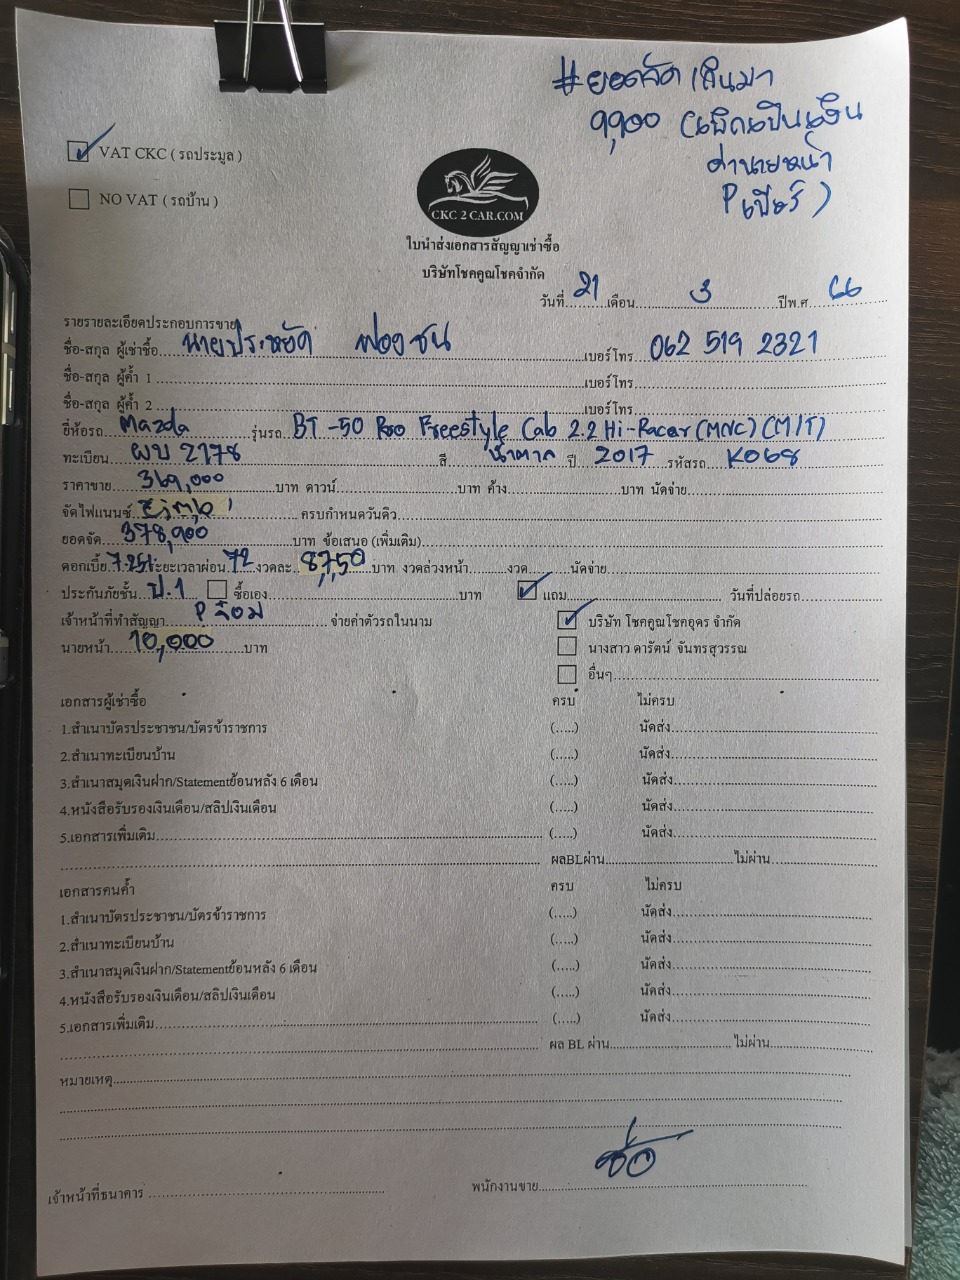 #ยอดจัดเกินมา
9,900 (เบิกเป็นเงิน
ค่านายหน้า
Pเบียร์)
VAT CKC ( รถประมูล )
NO VAT ( รถบ้าน )
CKC 2 CAR.COM
ใบนำส่งเอกสารสัญญาเช่าซื้อ
บริษัทโชคคูณโชคจำกัด
วันที่ 21 เดือน 3 ปีพ.ศ 66
รายรายละเอียดประกอบการขาย
ชื่อ-สกุล ผู้เช่าซื้อ นายประหยัด ฟองชน เบอร์โทร 062 519 2321
ชื่อ-สกุล ผู้ค้ำ 1 เบอร์โทร
ชื่อ-สกุล ผู้ค้ำ 2 เบอร์โทร
ยี่ห้อรถ Mazda รุ่นรถ BT-50 Pro Freestyle Cab 2.2 Hi-Racer (MNC) (M/T)
ทะเบียน ผบ 2178 สี น้ำตาล ปี 2017 รหัสรถ K068
ราคาขาย 369,000 บาท ดาวน์ บาท ค้าง บาท นัดจ่าย
จัดไฟแนนซ์ ครบกำหนดวันคิว
ยอดจัด 378,900 บาท ข้อเสนอ (เพิ่มเติม)
ดอกเบี้ย 7.25% ระยะเวลาผ่อน 72 งวดละ 8,750 บาท งวดล่วงหน้า งวด นัดจ่าย
ประกันภัยชั้น ป.1 ซื้อเอง บาท แถม วันที่ปล่อยรถ
เจ้าหน้าที่ทำสัญญา จ่ายค่าตัวรถในนาม บริษัท โชคคูณโชคอุดร จำกัด
นายหน้า 10,000 บาท นางสาว ดารัตน์ จันทรสุวรรณ
อื่นๆ
เอกสารผู้เช่าซื้อ ครบ ไม่ครบ
1.สำเนาบัตรประชาชน/บัตรข้าราชการ (.....) นัดส่ง
2.สำเนาทะเบียนบ้าน (.....) นัดส่ง
3.สำเนาสมุดเงินฝาก/Statementย้อนหลัง 6 เดือน (.....) นัดส่ง
4.หนังสือรับรองเงินเดือน/สลิปเงินเดือน (.....) นัดส่ง
5.เอกสารเพิ่มเติม (.....) นัดส่ง
ผลBLผ่าน ไม่ผ่าน
เอกสารคนค้ำ ครบ ไม่ครบ
1.สำเนาบัตรประชาชน/บัตรข้าราชการ (.....) นัดส่ง
2.สำเนาทะเบียนบ้าน (.....) นัดส่ง
3.สำเนาสมุดเงินฝาก/Statementย้อนหลัง 6 เดือน (.....) นัดส่ง
4.หนังสือรับรองเงินเดือน/สลิปเงินเดือน (.....) นัดส่ง
5.เอกสารเพิ่มเติม (.....) นัดส่ง
ผล BL ผ่าน ไม่ผ่าน
หมายเหตุ
เจ้าหน้าที่ธนาคาร พนักงานขาย